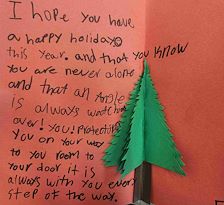 I hope you have
a happy holiday☺
this year. and that you know
you are never alone
and that an Angle
is always watching
over! you! Protecting
you on your way
to you room to
your door it is
always with you every
step of the way.